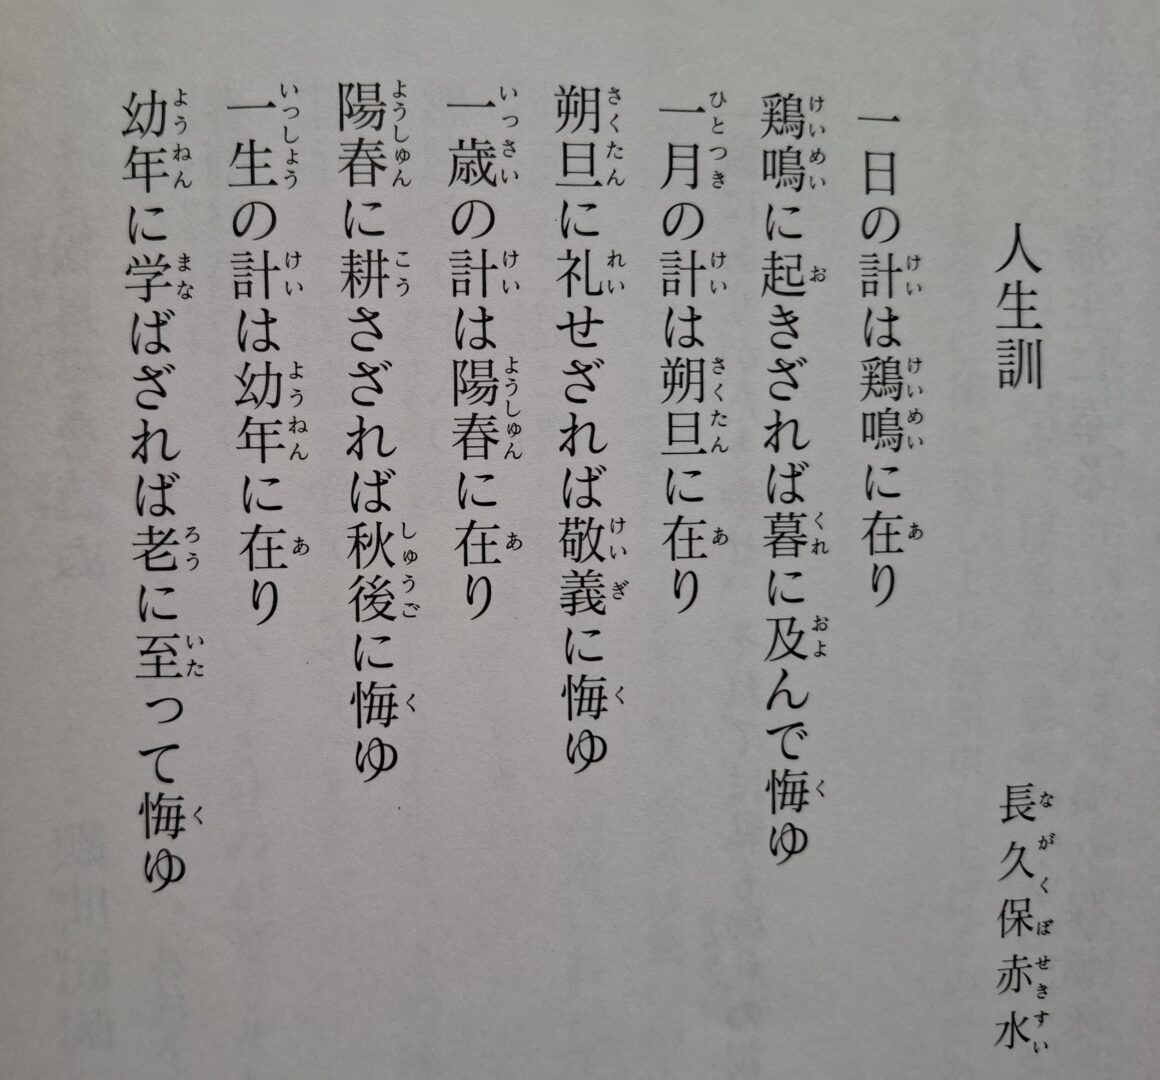 人生訓
長久保赤水
一日の計は鶏鳴に在り
鶏鳴に起きざれば暮に及んで悔ゆ
一月の計は朔旦に在り
朔旦に礼せざれば敬義に悔ゆ
一歳の計は陽春に在り
陽春に耕さざれば秋後に悔ゆ
一生の計は幼年に在り
幼年に学ばざれば老に至って悔ゆ